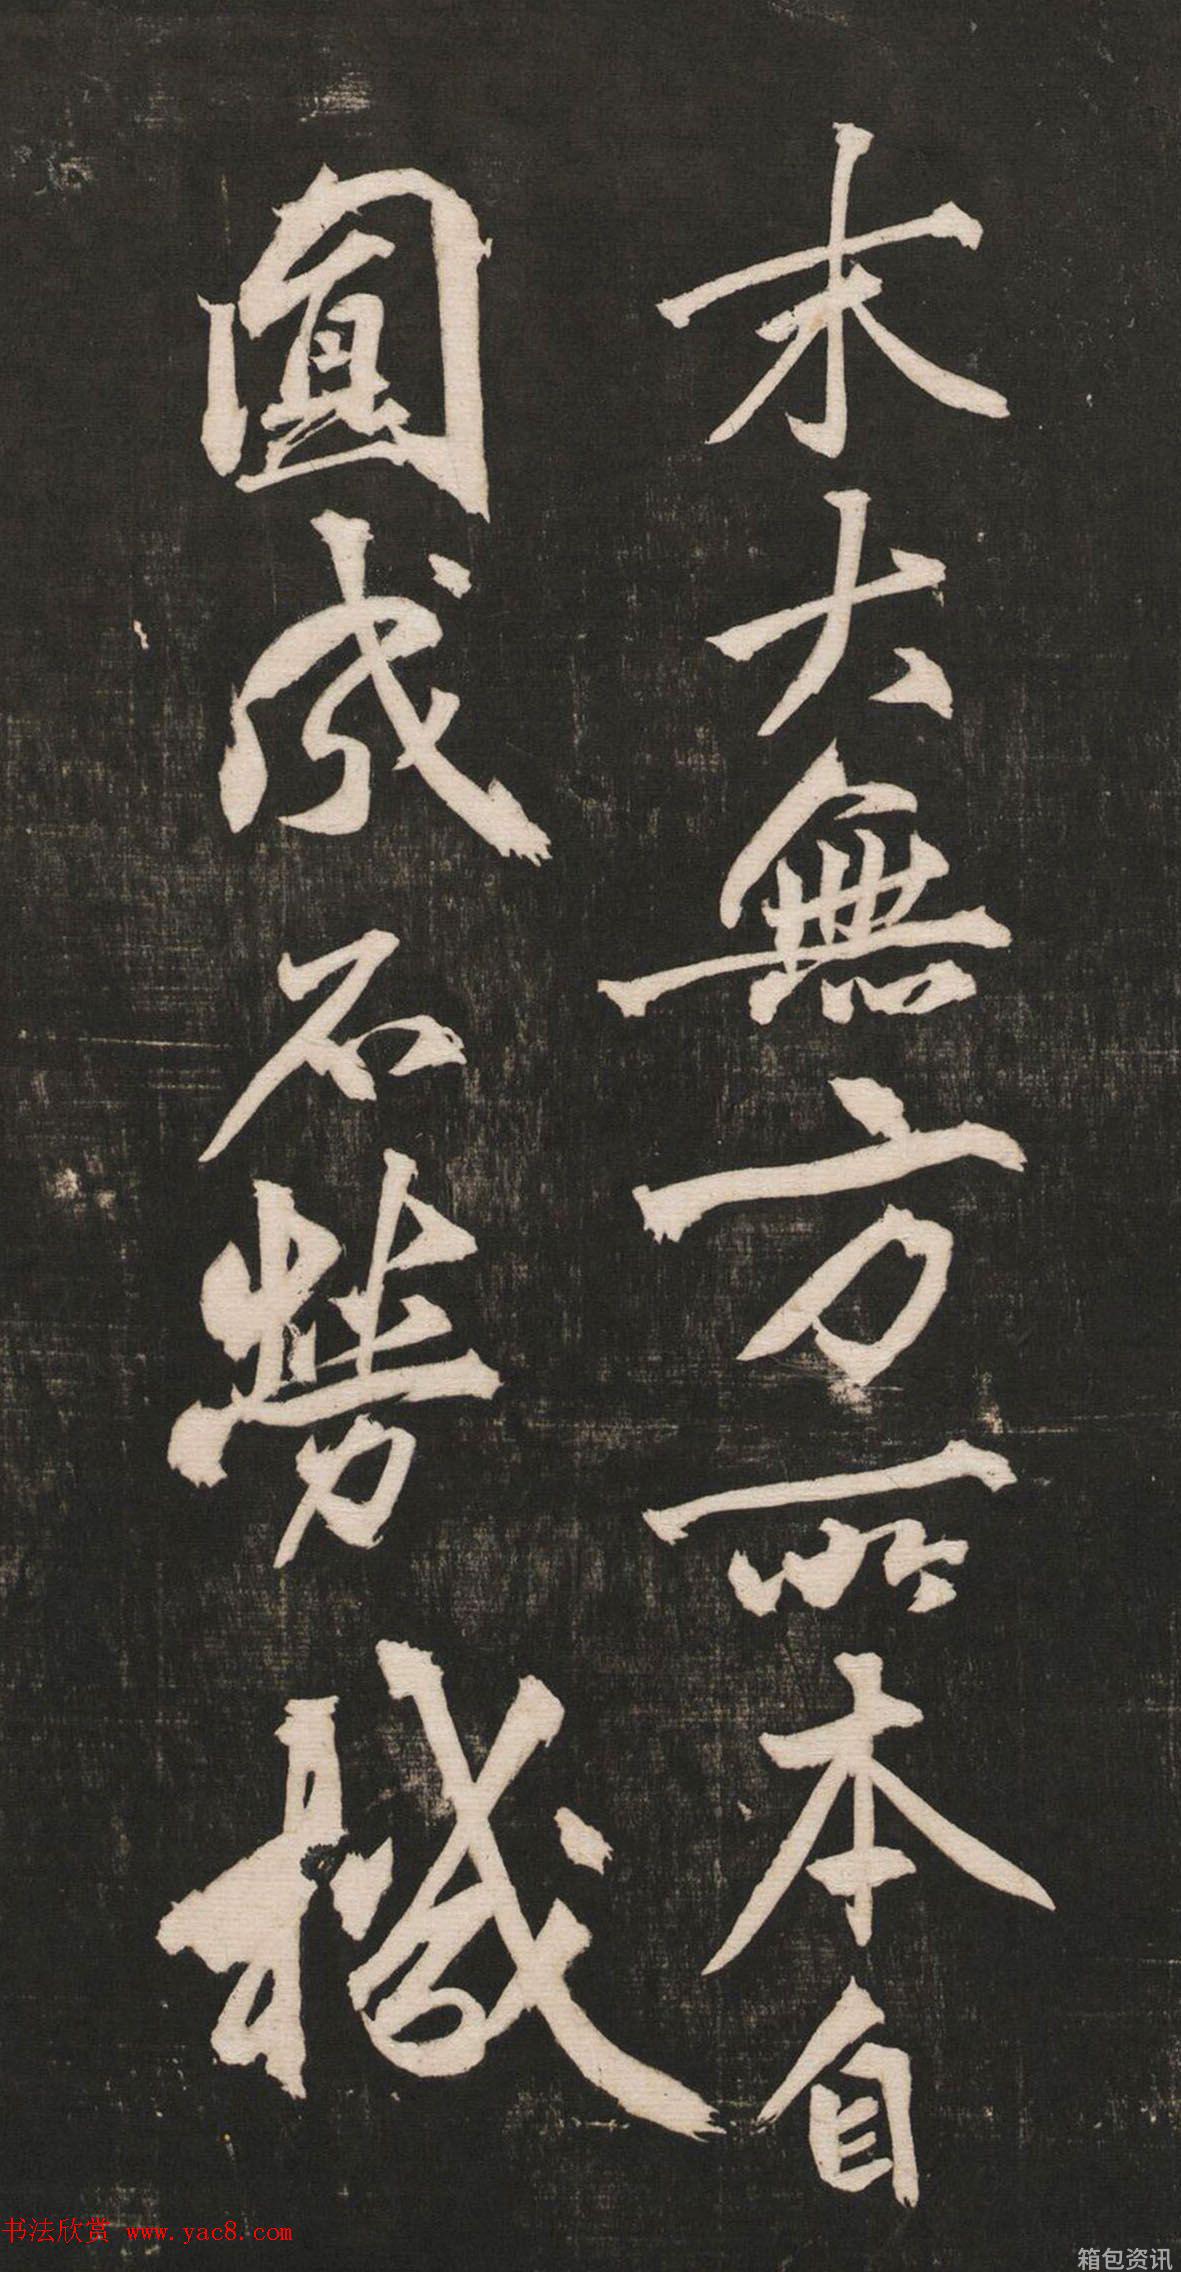 末大無方所本自
圓成不勞機
书法欣赏 www.yac8.com
箱包资讯